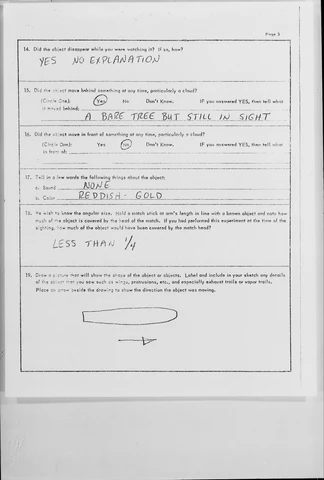 Page 3
14. Did the object disappear while you were watching it? If so, how?
YES NO EXPLANATION
15. Did the object move behind something at any time, particularly a cloud?
(Circle One): Yes No Don't Know. IF you answered YES, then tell what
it moved behind:
A BARE TREE BUT STILL IN SIGHT
16. Did the object move in front of something at any time, particularly a cloud?
(Circle One): Yes No Don't Know. IF you answered YES, then tell what
in front of:
17. Tell in a few words the following things about the object:
a. Sound NONE
b. Color REDDISH - GOLD
18. We wish to know the angular size. Hold a match stick at arm's length in line with a known object and note how
much of the object is covered by the head of the match. If you had performed this experiment at the time of the
sighting, how much of the object would have been covered by the match head?
LESS THAN 1/4
19. Draw a picture that will show the shape of the object or objects. Label and include in your sketch any details
of the object that you saw such as wings, protrusions, etc., and especially exhaust trails or vapor trails.
Place an arrow beside the drawing to show the direction the object was moving.